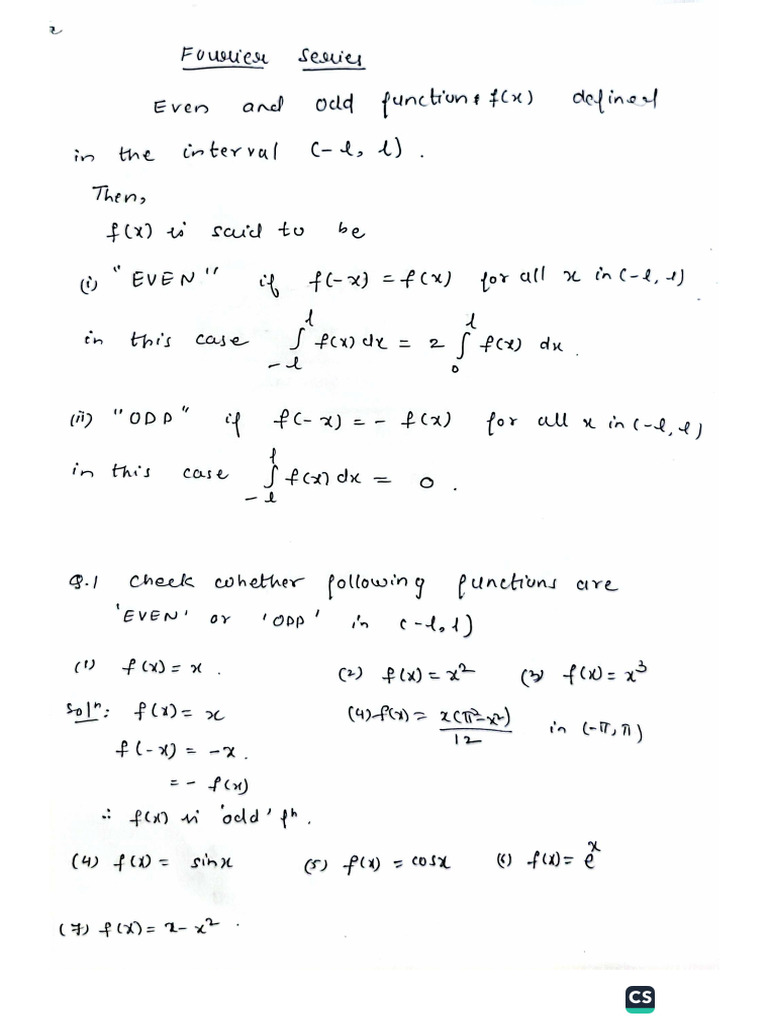 2
Fourier Series
Even and odd functions f(x) defined
in the interval (-l, l).
Then,
f(x) is said to be
(i) "EVEN" if f(-x) = f(x) for all x in (-l, l)
in this case ∫_{-l}^{l} f(x) dx = 2 ∫_{0}^{l} f(x) dx.
(ii) "ODD" if f(-x) = - f(x) for all x in (-l, l)
in this case ∫_{-l}^{l} f(x) dx = 0.
Q.1 Check whether following functions are
'EVEN' or 'ODD' in (-l, l)
(1) f(x) = x. (2) f(x) = x² (3) f(x) = x³
Solⁿ: f(x) = x (4) f(x) = x(π²-x²)/12 in (-π, π)
f(-x) = -x.
= - f(x)
∴ f(x) is 'odd' fⁿ.
(4) f(x) = sinx (5) f(x) = cosx (6) f(x) = e^x
(7) f(x) = x - x².
CS